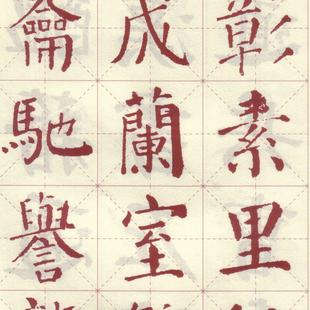 彰素里
成蘭室
龠馳譽